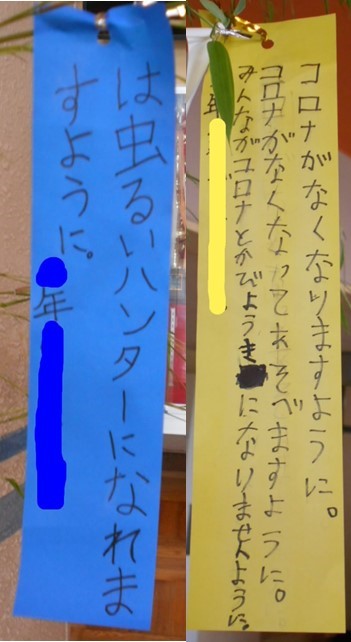 は虫るいハンターになれま
すように。
年
コロナがなくなりますように。
コロナがなくなってあそべますように。
みんながコロナとかびようきになりませんように。
年